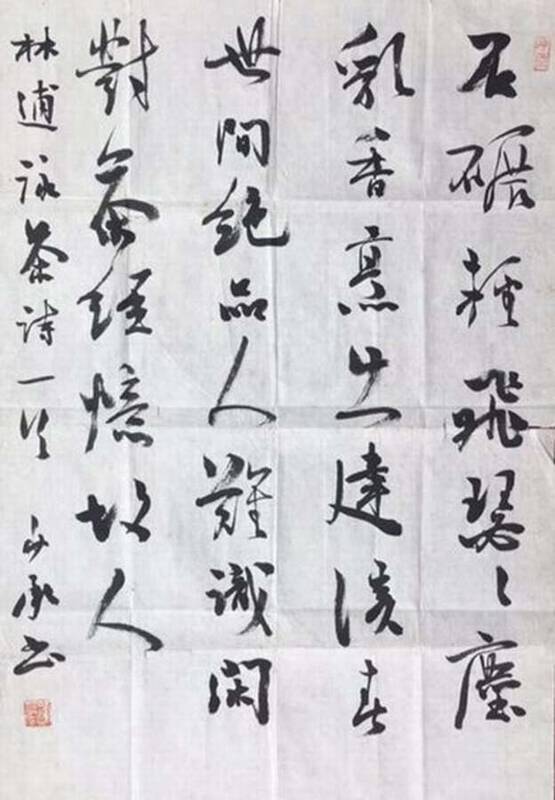 石碾輕飛瑟々塵
乳香烹出建溪春
世間絕品人難識閑
對茶經憶故人
林逋詠茶詩一首 承书